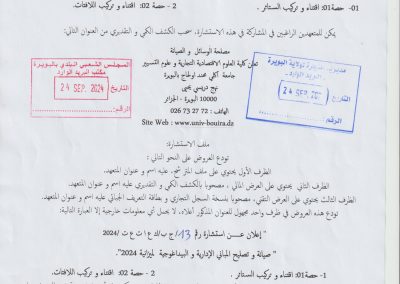 01- حصة 01: اقتناء و تركيب الستائر . 2 - حصة 02: اقتناء و تركيب اللافتات.
يمكن للمتعهدين الراغبين في المشاركة في هذه الاستشارة، سحب الكشف الكمي و التقديري من العنوان التالي:
مصلحة الوسائل و الصيانة
كلية العلوم الاقتصادية التجارية و علوم التسيير
جامعة آكلي محند اولحاج بالبويرة
نهج دريسي يحيى
10000 البويرة - الجزائر
الهاتف : 72 27 73 026
Site Web : www.univ-bouira.dz
المجلس الشعبي البلدي بالبويرة
مكتب البريد الوارد
التاريخ 24 SEP. 2024
الرقم:
لولاية البويرة
البريد الوارد
التاريخ 24 SEP. 202
الرقم:
ملف الاستشارة:
تودع العروض على النحو التالي :
الظرف الأول يحتوي على ملف الترشح، عليه اسم و عنوان المتعهد.
الظرف الثاني يحتوي على العرض المالي ، مصحوبا بالكشف الكمي و التقديري عليه اسم و عنوان المتعهد.
الظرف الثالث يحتوي على العرض التقني، مصحوبا بنسخة السجل التجاري و بطاقة التعريف الجبائي عليه اسم و عنوان المتعهد.
تودع هذه العروض في ظرف واحد مجهول للعنوان المذكور أعلاه، لا يحمل أي معلومات خارجية إلا العبارة التالية:
" إعلان عـــن استشارة رقم 13/ج ب/ك ع ا ت ع ت /2024
" صيانة و تصليح المباني الإدارية و البيداغوجية لميزانية 2024"
1 - حصة 01: اقتناء و تركيب الستائر . 2 - حصة 02: اقتناء و تركيب اللافتات.